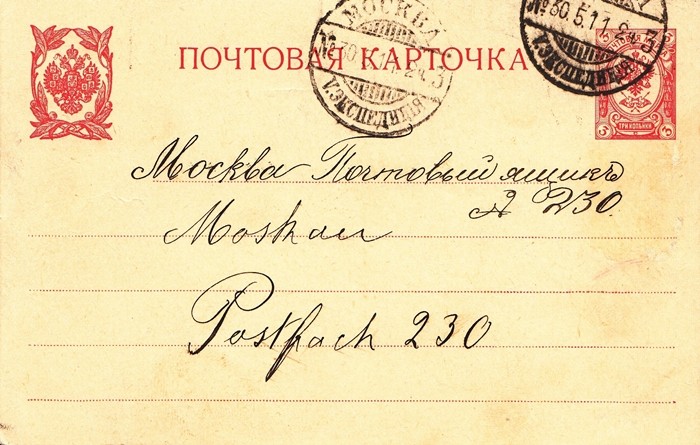 ПОЧТОВАЯ КАРТОЧКА
МОСКВА
V. ЭКСПЕДИЦІЯ
№ 30.5.11 3
V. ЭКСПЕДИЦІЯ
ТРИ КОПѢЙКИ
3 3
Москва Почтовый ящикъ
№ 230.
Moskau
Postfach 230